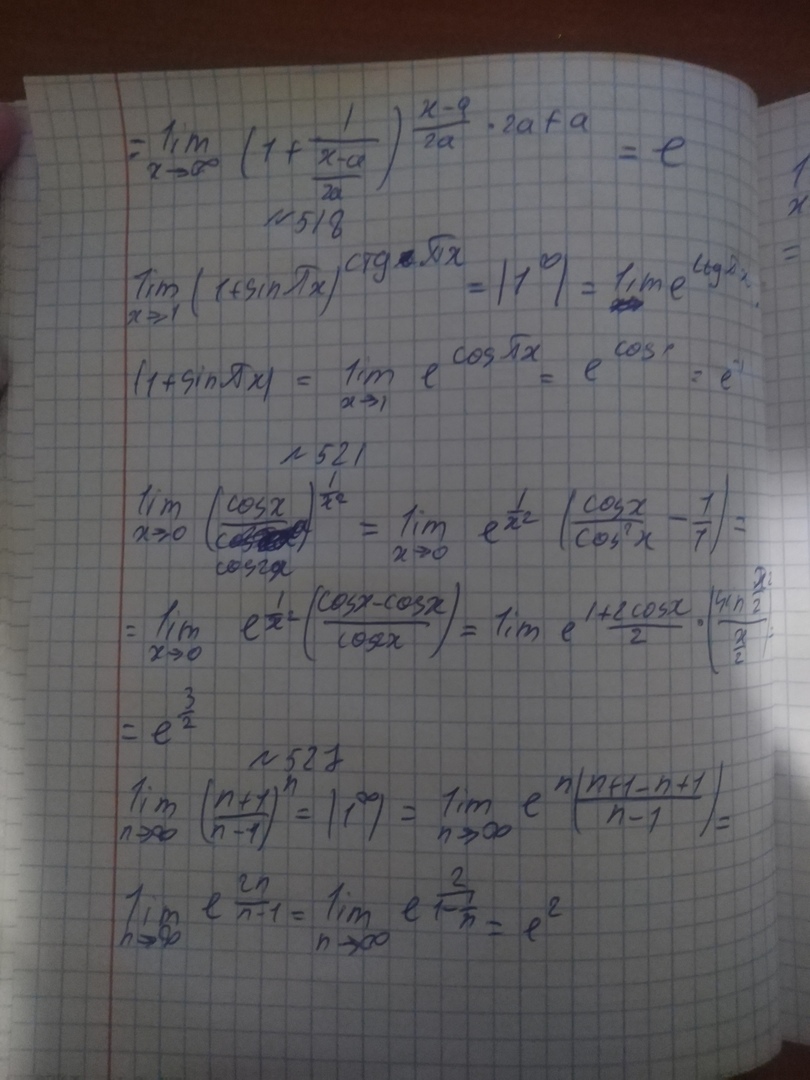 = lim x→∞ (1 + 1/((x-a)/2a))^((x-a)/2a · 2a + a) = e
~518
lim x→1 (1+sinπx)^(ctg πx) = |1^∞| = lim e^(ctgπx ·
(1+sinπx) = lim x→1 e^(cosπx) = e^(cosπ) = e^(-1)
~521
lim x→0 (cosx/cos2x)^(1/x²) = lim x→0 e^(1/x²) (cosx/cos²x - 1/1) =
= lim x→0 e^(1/x²) (cosx-cosx/cosx) = lim e^(1+2cosx/2) · (sin x/2 / x/2)²=
= e^(3/2)
~527
lim n→∞ (n+1/n-1)^n = |1^∞| = lim n→∞ e^(n(n+1-n+1/n-1)) =
lim n→∞ e^(2n/n-1) = lim n→∞ e^(2/(1-1/n)) = e²